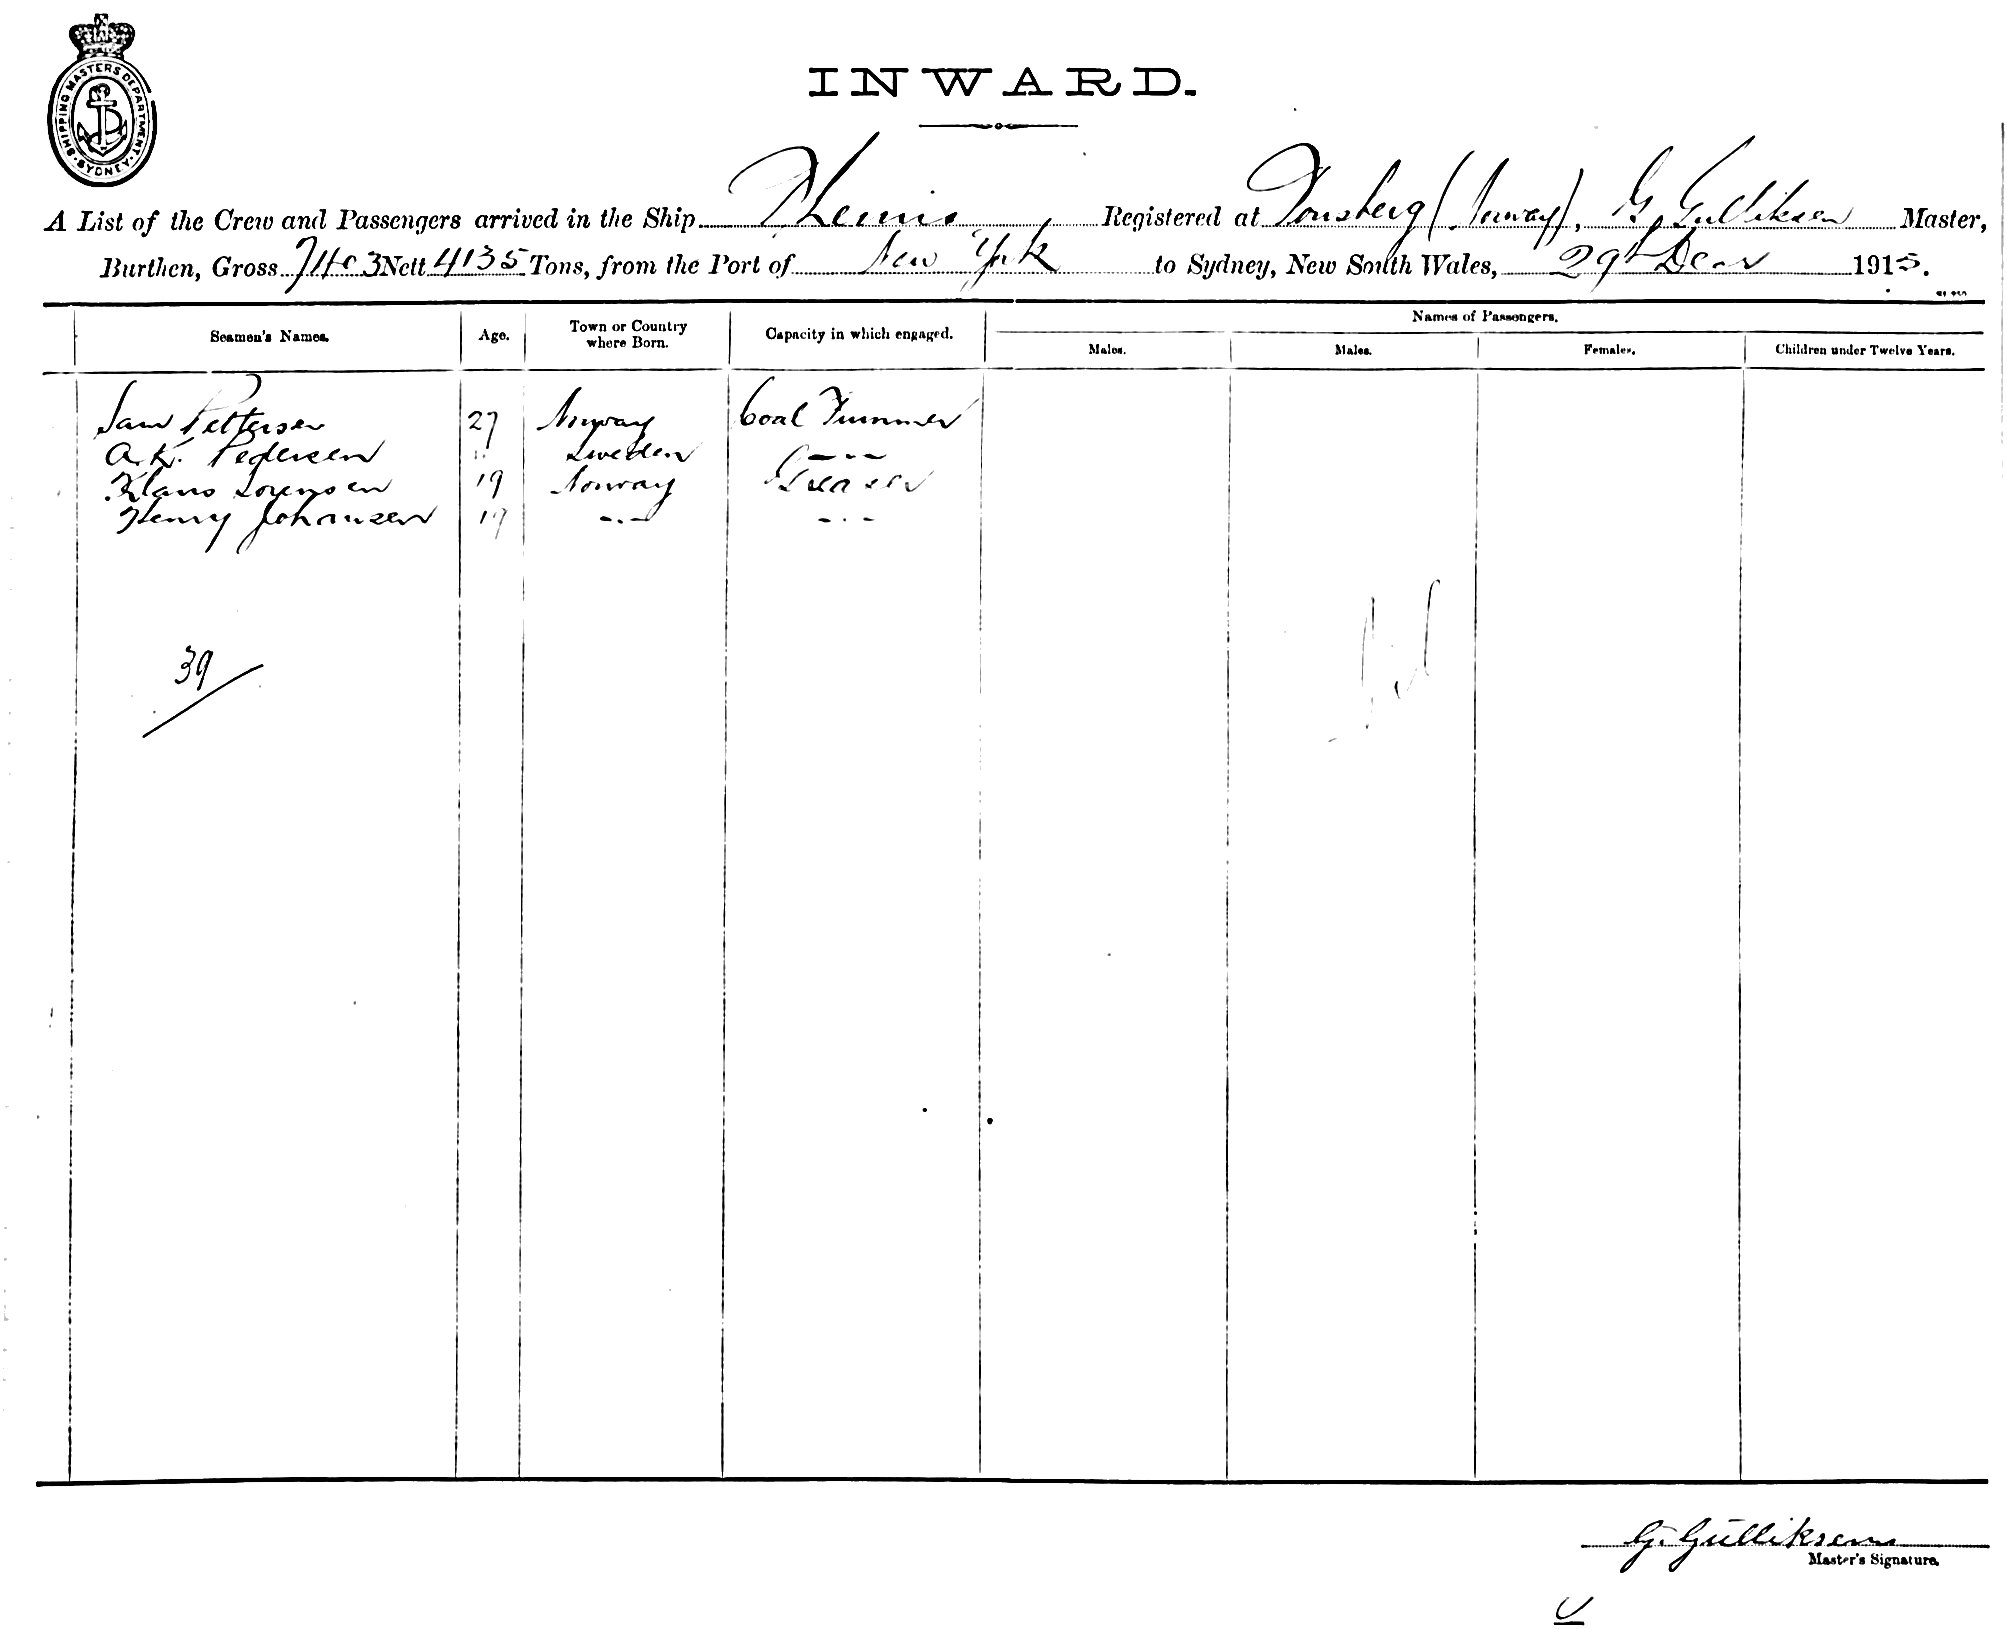 SHIPPING MASTERS DEPARTMENT. SYDNEY.
INWARD.
A List of the Crew and Passengers arrived in the Ship Themis Registered at Tonsberg (Norway), G. Gulliksen Master,
Burthen, Gross 7403 Nett 4135 Tons, from the Port of New York to Sydney, New South Wales, 29th Decr 1915.
Names of Passengers.
Seamen's Names. Age. Town or Country where Born. Capacity in which engaged. Males. Males. Females. Children under Twelve Years.
Sam Pettersen 27 Norway Coal Trimmer
A.K. Pedersen " Sweden -.-
Klaus Sorensen 19 Norway Greaser
Henry Johansen 19 -.- -.-
39
G. Gulliksen
Master's Signature.